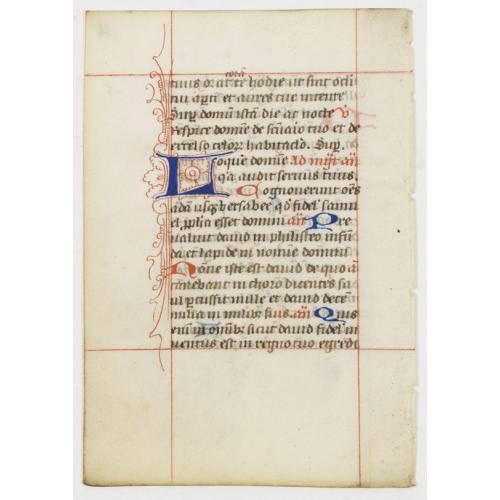 corā
tuus orat te hodie ut sint oculi
tui aperti et aures tue intente
Sup domum istā die ac nocte V
respice domine de scūaio tuo et de
excelso celor habitaclo. Sup.
Loquere domine Ad mist an
qa audit seruus tuus.
Cognouerunt oēs
a dan usq bersabee qd fidel samu
el ppha esset domini an Pre
ualuit dauid in philisteo in fun
da et lapide in nomine domini
Nōne iste est dauid de quo a
canebant in choro dicentes sa
ul percussit mille et dauid decē
milia in milibus suis. an Quis
eni in omnibus sicut dauid fidel in
uentus est in regno tuo egredi